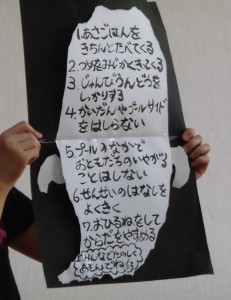 1.あさごはんを
きちんとたべてくる
2.つめをみじかくきってくる
3.じゅんびうんどうを
しっかりする
4.かいだんやプールサイド
をはしらない
5プールのなかで
おともだちのいやがる
ことはしない
6.せんせいのはなしを
よくきく
7.おひるねをして
からだをやすめる
みんなでたのしく
あそんでね